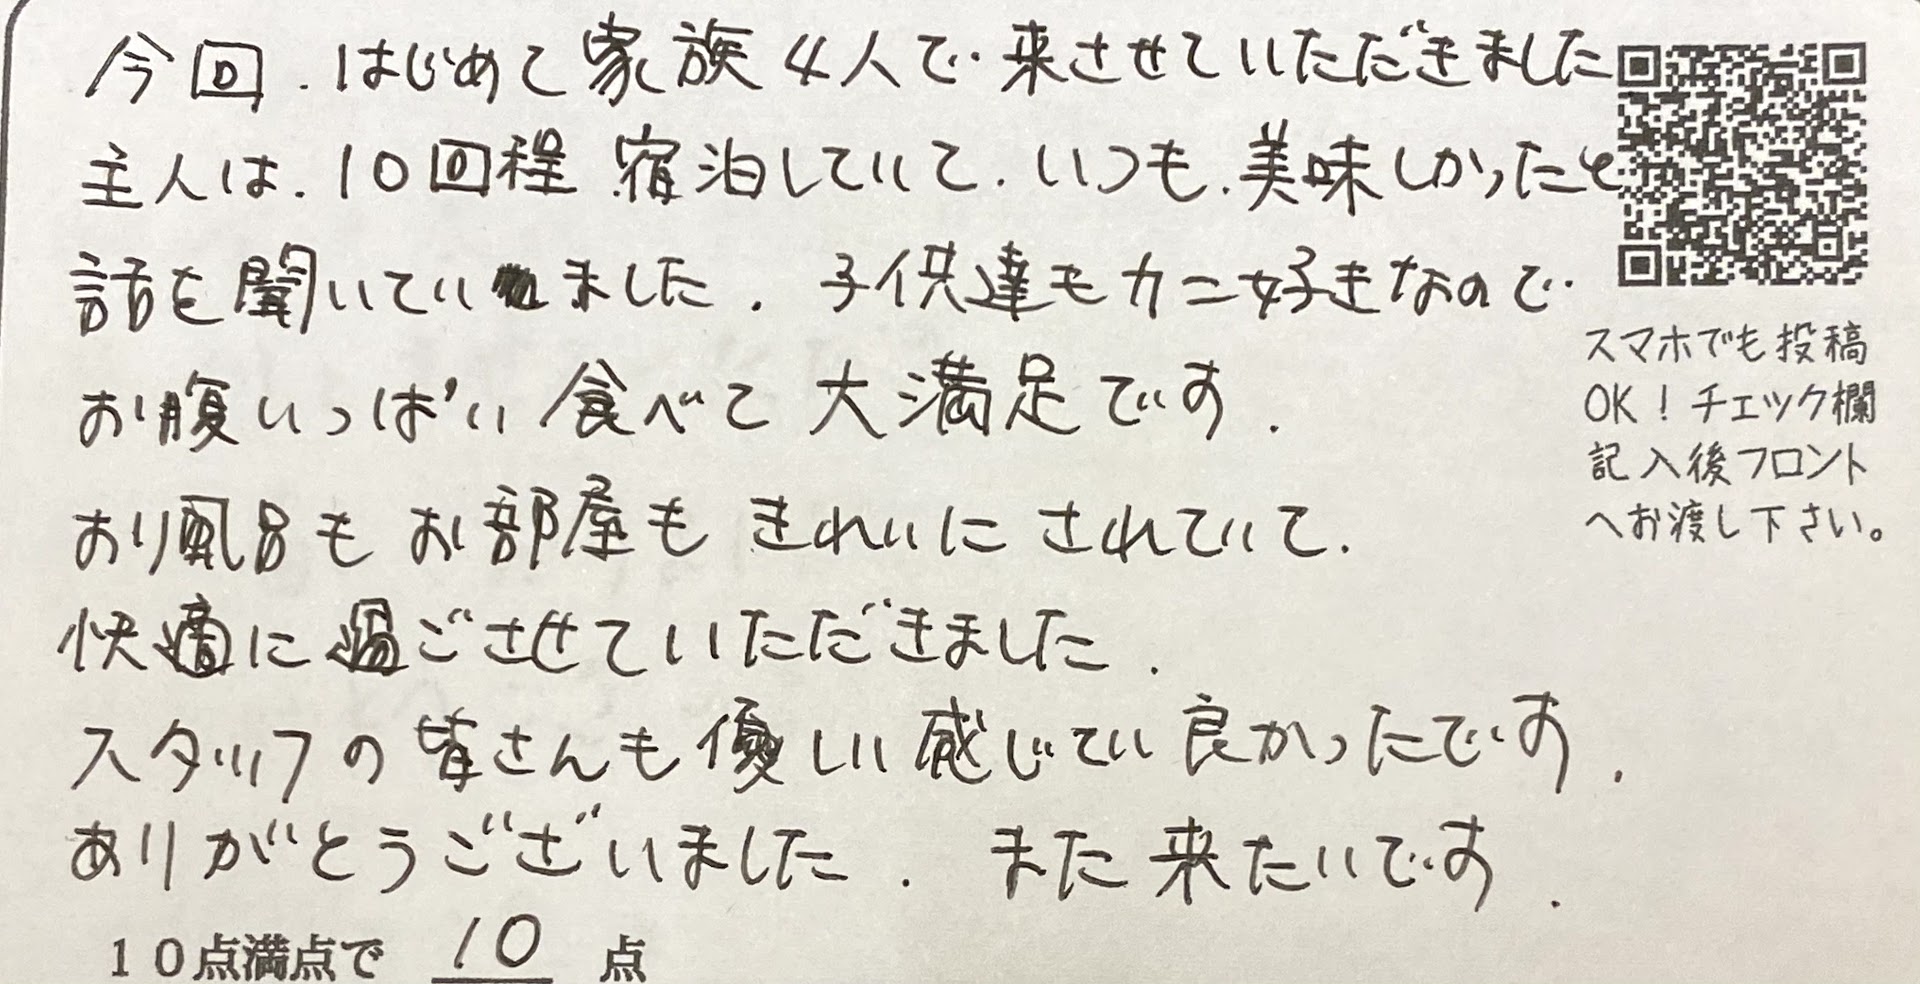 今回.はじめて家族4人で.来させていただきました
主人は.10回程.宿泊していて.いつも.美味しかったと
話を聞いていました.子供達もカニ好きなので.
お腹いっぱい食べて大満足です.
お風呂もお部屋もきれいにされていて.
快適に過ごさせていただきました.
スタッフの皆さんも優しい感じでい良かったです.
ありがとうございました.また来たいです.
10点満点で 10 点
スマホでも投稿
OK！チェック欄
記入後フロント
へお渡し下さい。